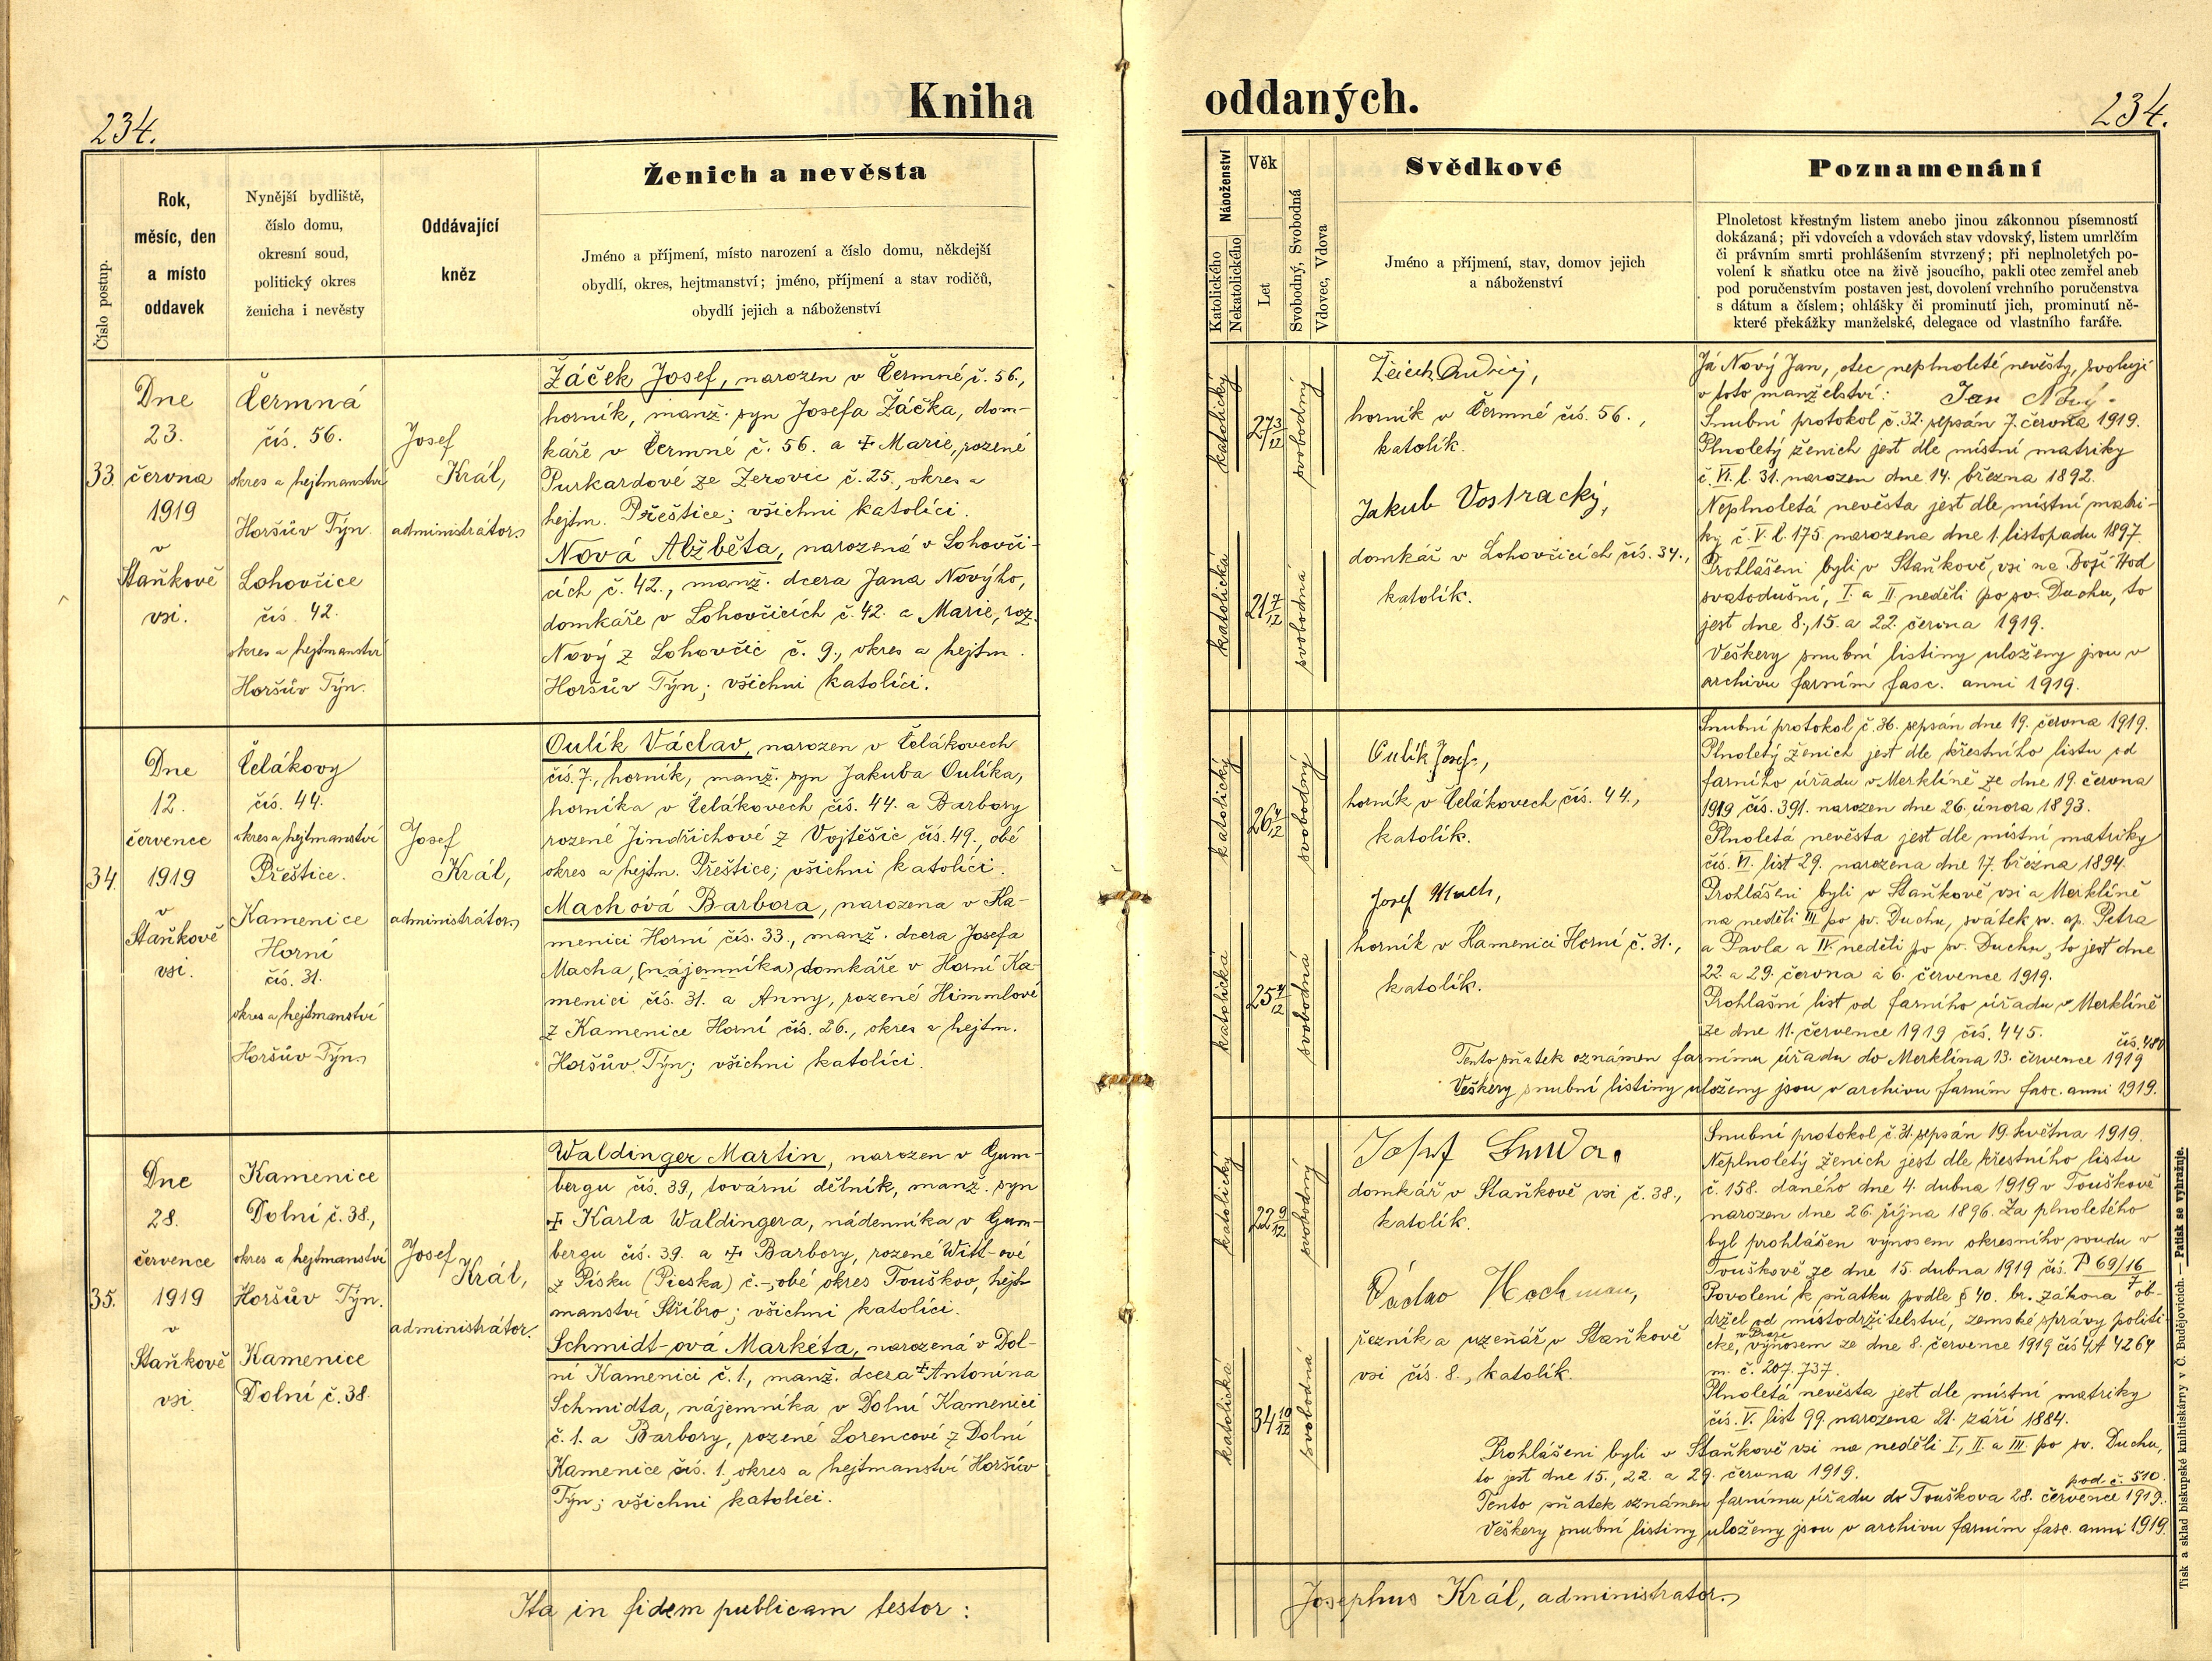 234.
Kniha
Číslo postup.
Rok,
měsíc, den
a místo
oddavek
Nynější bydliště,
číslo domu,
okresní soud,
politický okres
ženicha i nevěsty
Oddávající
kněz
Ženich a nevěsta
Jméno a příjmení, místo narození a číslo domu, někdejší
obydlí, okres, hejtmanství; jméno, příjmení a stav rodičů,
obydlí jejich a náboženství
33.
Dne
23.
června
1919
v
Staňkově
vsi.
Čermná
čís. 56.
okres a hejtmanství
Horšův Týn.
Lohovčice
čís. 42.
okres a hejtmanství
Horšův Týn.
Josef
Král,
administrátor.
Žáček Josef, narozen v Čermné, č. 56.,
horník, manž. syn Josefa Žáčka, dom-
káře v Čermné č. 56. a ‡ Marie, rozené
Purkardové ze Zerovic č. 25., okres a
hejtm. Přeštice; všichni katolíci.
Nová Alžběta, narozená v Lohovči-
cích č. 42., manž. dcera Jana Nového,
domkáře v Lohovčicích č. 42. a Marie, roz.
Nový z Lohovčic č. 9., okres a hejtm.
Horšův Týn; všichni katolíci.
34.
Dne
12.
července
1919
v
Staňkově
vsi.
Čelákovy
čís. 44.
okres a hejtmanství
Přeštice.
Kamenice
Horní
čís. 31.
okres a hejtmanství
Horšův Týn.
Josef
Král,
administrátor.
Oulík Václav, narozen v Čelákovech
čís. 7., horník, manž. syn Jakuba Oulíka,
horníka v Čelákovech čís. 44. a Barbory
rozené Jindřichové z Vojtěšic čís. 49., obé
okres a hejtm. Přeštice; všichni katolíci.
Machová Barbora, narozena v Ka-
menici Horní čís. 33., manž. dcera Josefa
Macha, (nájemníka) domkáře v Horní Ka-
menici čís. 31. a Anny, rozené Himmlové
z Kamenice Horní čís. 26., okres a hejtm.
Horšův Týn; všichni katolíci.
35.
Dne
28.
července
1919
v
Staňkově
vsi.
Kamenice
Dolní č. 38.,
okres a hejtmanství
Horšův Týn.
Kamenice
Dolní č. 38.
Josef
Král,
administrátor.
Waldinger Martin, narozen v Gum-
bergu čís. 39, tovární dělník, manž. syn
‡ Karla Waldingera, nádenníka v Gum-
bergu čís. 39. a ‡ Barbory, rozené Witt-ové
z Písku (Pieska) č.-, obé okres Touškov, hejt-
manství Stříbro; všichni katolíci.
Schmidt-ová Markéta, narozená v Dol-
ní Kamenici č. 1., manž. dcera ‡ Antonína
Schmidta, nájemníka v Dolní Kamenici
č. 1. a Barbory, rozené Lorencové z Dolní
Kamenice čís. 1. okres a hejtmanství Horšův
Týn; všichni katolíci.
Ita in fidem publicam testor:
oddaných.
234.
Náboženství
Katolického
Nekatolického
Věk
Let
Svobodný, Svobodná
Vdovec, Vdova
Svědkové
Jméno a příjmení, stav, domov jejich
a náboženství
Poznamenání
Plnoletost křestným listem anebo jinou zákonnou písemností
dokázaná; při vdovcích a vdovách stav vdovský, listem umrlčím
či právním smrti prohlášením stvrzený; při neplnoletých po-
volení k sňatku otce na živě jsoucího, pakli otec zemřel aneb
pod poručenstvím postaven jest, dovolení vrchního poručenstva
s dátum a číslem; ohlášky či prominutí jich, prominutí ně-
které překážky manželské, delegace od vlastního faráře.
katolický
27 3/12
svobodný
katolická
21 7/12
svobodná
horník v Čermné čís. 56.,
katolík.
Jakub Vostracký,
domkář v Lohovčicích čís. 34.,
katolík.
Já Nový Jan, otec neplnoleté nevěsty, svoluji
v toto manželství: Jan Nový.
Snubní protokol č. 32. sepsán 7. června 1919.
Plnoletý ženich jest dle místní matriky
č. VI. l. 31. narozen dne 14. března 1892.
Neplnoletá nevěsta jest dle místní matri-
ky č. V. l. 175. narozena dne 1. listopadu 1897.
Prohlášeni byli v Staňkově, vsi na Boží Hod
svatodušní, I. a II. neděli po sv. Duchu, to
jest dne 8., 15. a 22. června 1919.
Veškery snubní listiny uloženy jsou v
archivu farním fasc. anni 1919.
katolický
26 4/12
svobodný
katolická
25 4/12
svobodná
Oulík Josef,
horník v Čelákovech čís. 44.,
katolík.
Josef Mach,
horník v Kamenici Horní č. 31.,
katolík.
Snubní protokol č. 36. sepsán dne 19. června 1919.
Plnoletý ženich jest dle křestního listu od
farního úřadu v Merklíně ze dne 19. června
1919 čís. 391. narozen dne 26. února 1893.
Plnoletá nevěsta jest dle místní matriky
čís. VI. list 29. narozena dne 17. března 1894.
Prohlášeni byli v Staňkově vsi a Merklíně
na neděli III. po sv. Duchu, svátek sv. ap. Petra
a Pavla a IV. neděli po sv. Duchu, to jest dne
22. a 29. června a 6. července 1919.
Prohlašní list od farního úřadu v Merklíně
ze dne 11. července 1919 čís. 445.
Tento sňatek oznámen farnímu úřadu do Merklína 13. července 1919
Veškery snubní listiny uloženy jsou v archivu farním fasc. anni 1919.
katolický
22 9/12
svobodný
katolická
34 10/12
svobodná
Josef
domkář v Staňkově vsi č. 38.,
katolík.
Václav Hochman,
řezník a uzenář v Staňkově
vsi čís. 8., katolík.
Snubní protokol č. 31. sepsán 19. května 1919.
Neplnoletý ženich jest dle křestního listu
č. 158. daného dne 4. dubna 1919 v Touškově
narozen dne 26. října 1896. Za plnoletého
byl prohlášen výnosem okresního soudu v
Touškově ze dne 15. dubna 1919 čís. P 69/16
7
Povolení k sňatku podle § 40. br. zákona ob-
držel od místodržitelství, zemské správy politi-
cké, v Praze výnosem ze dne 8. července 1919 čís 4A 4264
m. č. 207.737.
Plnoletá nevěsta jest dle místní matriky
čís. V. list 99. narozena 21. září 1884.
Prohlášeni byli v Staňkově vsi na neděli I., II. a III. po sv. Duchu,
to jest dne 15., 22. a 29. června 1919.
pod č. 510.
Tento sňatek oznámen farnímu úřadu do Touškova 28. července 1919.
Veškery snubní listiny uloženy jsou v archivu farním fasc. anni 1919.
Josephus Král, administrator.
Tisk a sklad biskupské knihtiskárny v Č. Budějovicích. — Patisk se vyhražuje.